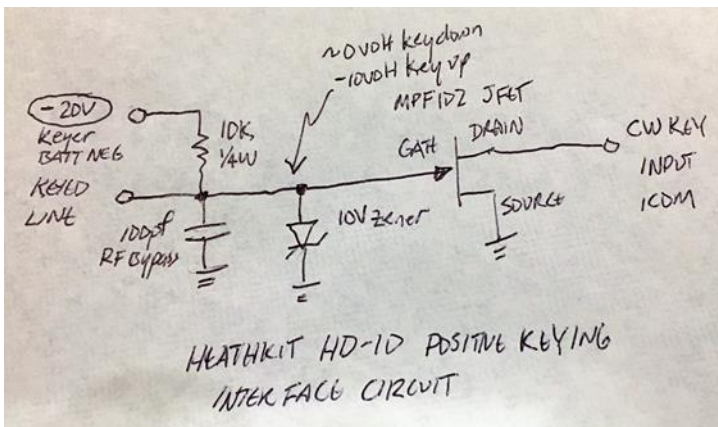 ~0 volt key down
-10 volt key up
MPF102 JFET
-20V
Keyer
BATT NEG
10K,
1/4W
KEYED
LINE
100pf
RF Bypass
10V Zener
GATE
DRAIN
SOURCE
CW KEY
INPUT
ICOM
HEATHKIT HD-10 POSITIVE KEYING
INTERFACE CIRCUIT